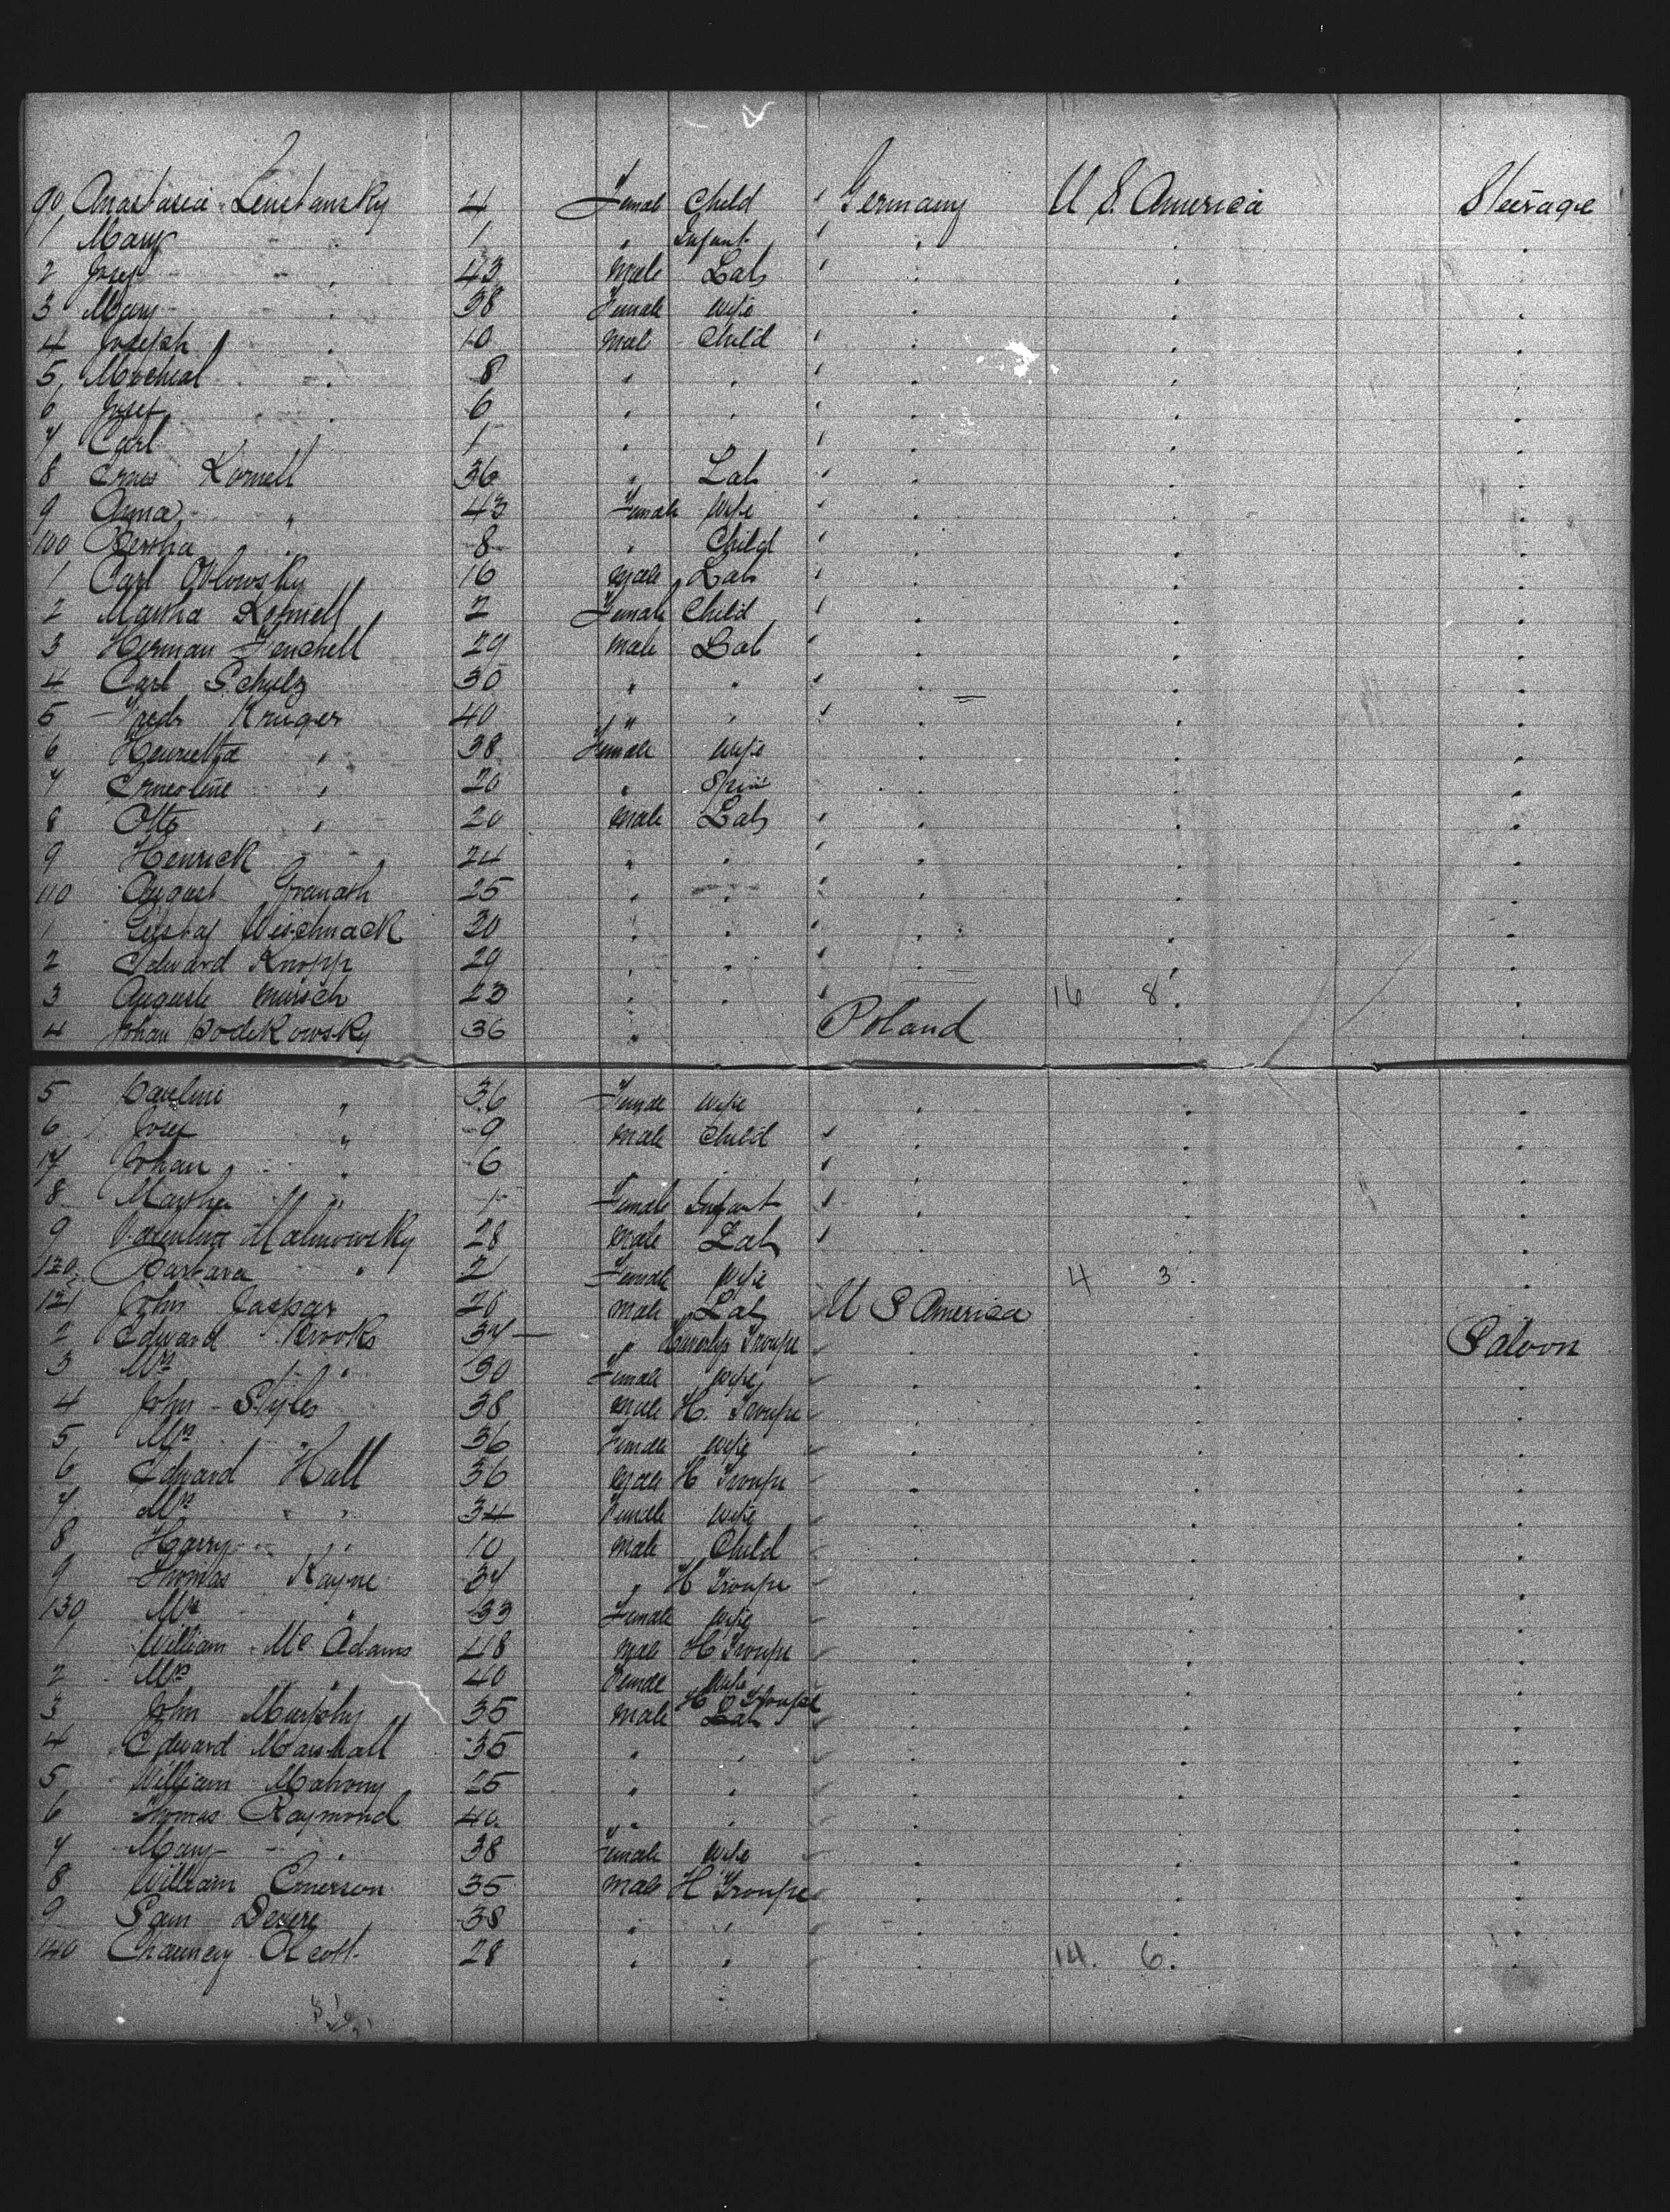 90 Anastasia Lenstansky 4 Female Child Germany U S. America Steerage
1 Mary " 1 " Infant " " "
2 Josef " 43 Male Lab " " "
3 Mary " 38 Female Wife " " "
4 Joseph " 10 Male Child " " "
5 Michial " 8 " " " " "
6 Josef " 6 " " " " "
7 Carl 1 " " " "
8 Ernes Kornell 36 " Lab " " "
9 Anna " 43 Female Wife " " "
100 Bertha " 8 " Child " " "
1 Carl Oblowsky 16 Male Lab " " "
2 Martha Kornell 2 Female Child " " "
3 Herman Fenchell 29 Male Lab " " "
4 Carl Schulz 30 " " " " "
5 Fredr Kruger 40 " " " " "
6 Henrietta " 38 Female Wife " " "
7 Ernestine " 20 " Spin " " "
8 Otto " 20 Male Lab " " "
9 Henrick 24 " " " " "
110 August Granath 25 " " " " "
1 Gustaf Wischnack 20 " " " " "
2 Edward Knopp 29 " " " " "
3 Auguste Mursch 23 " " " 16 8 "
4 Johan Podekowsky 36 " Poland " "
5 Pauline " 36 Female Wife " " "
6 Josef " 9 Male Child " " "
17 Johan " 6 " " "
8 Martha " 1 Female Infant " " "
9 Valentine Malinowsky 28 Male Lab " " "
120 Barbara " 21 Female Wife 4 3 "
121 John Jaspar 26 Male Lab U S America "
2 Edward Brooks 37 " Haverlys Troupe " " Saloon
3 Mrs " 30 Female Wife " " "
4 John Styles 38 Male H. Troupe " " "
5 Mrs " 36 Female Wife " " "
6 Edward Hall 36 Male H Troupe " " "
7 Mrs " 34 Female Wife " " "
8 Harry " 10 Male Child " " "
9 Thomas Kayne 37 " H Troupe " " "
130 Mrs " 33 Female Wife " " "
1 William Mc Adams 48 Male H Troupe " " "
2 Mrs " 40 Female Wife " " "
3 John Murphy 35 Male Lab H Troupe " " "
4 Edward Marshall 35 " " " " "
5 William Mahony 25 " " " " "
6 Thomas Raymond 40 " " " " "
7 Mary " 38 Female Wife " " "
8 William Emerson 35 Male H Troupe " " "
9 Sam Devere 38 " " " " "
140 Chauncey Olcott 28 " " " 14. 6. "